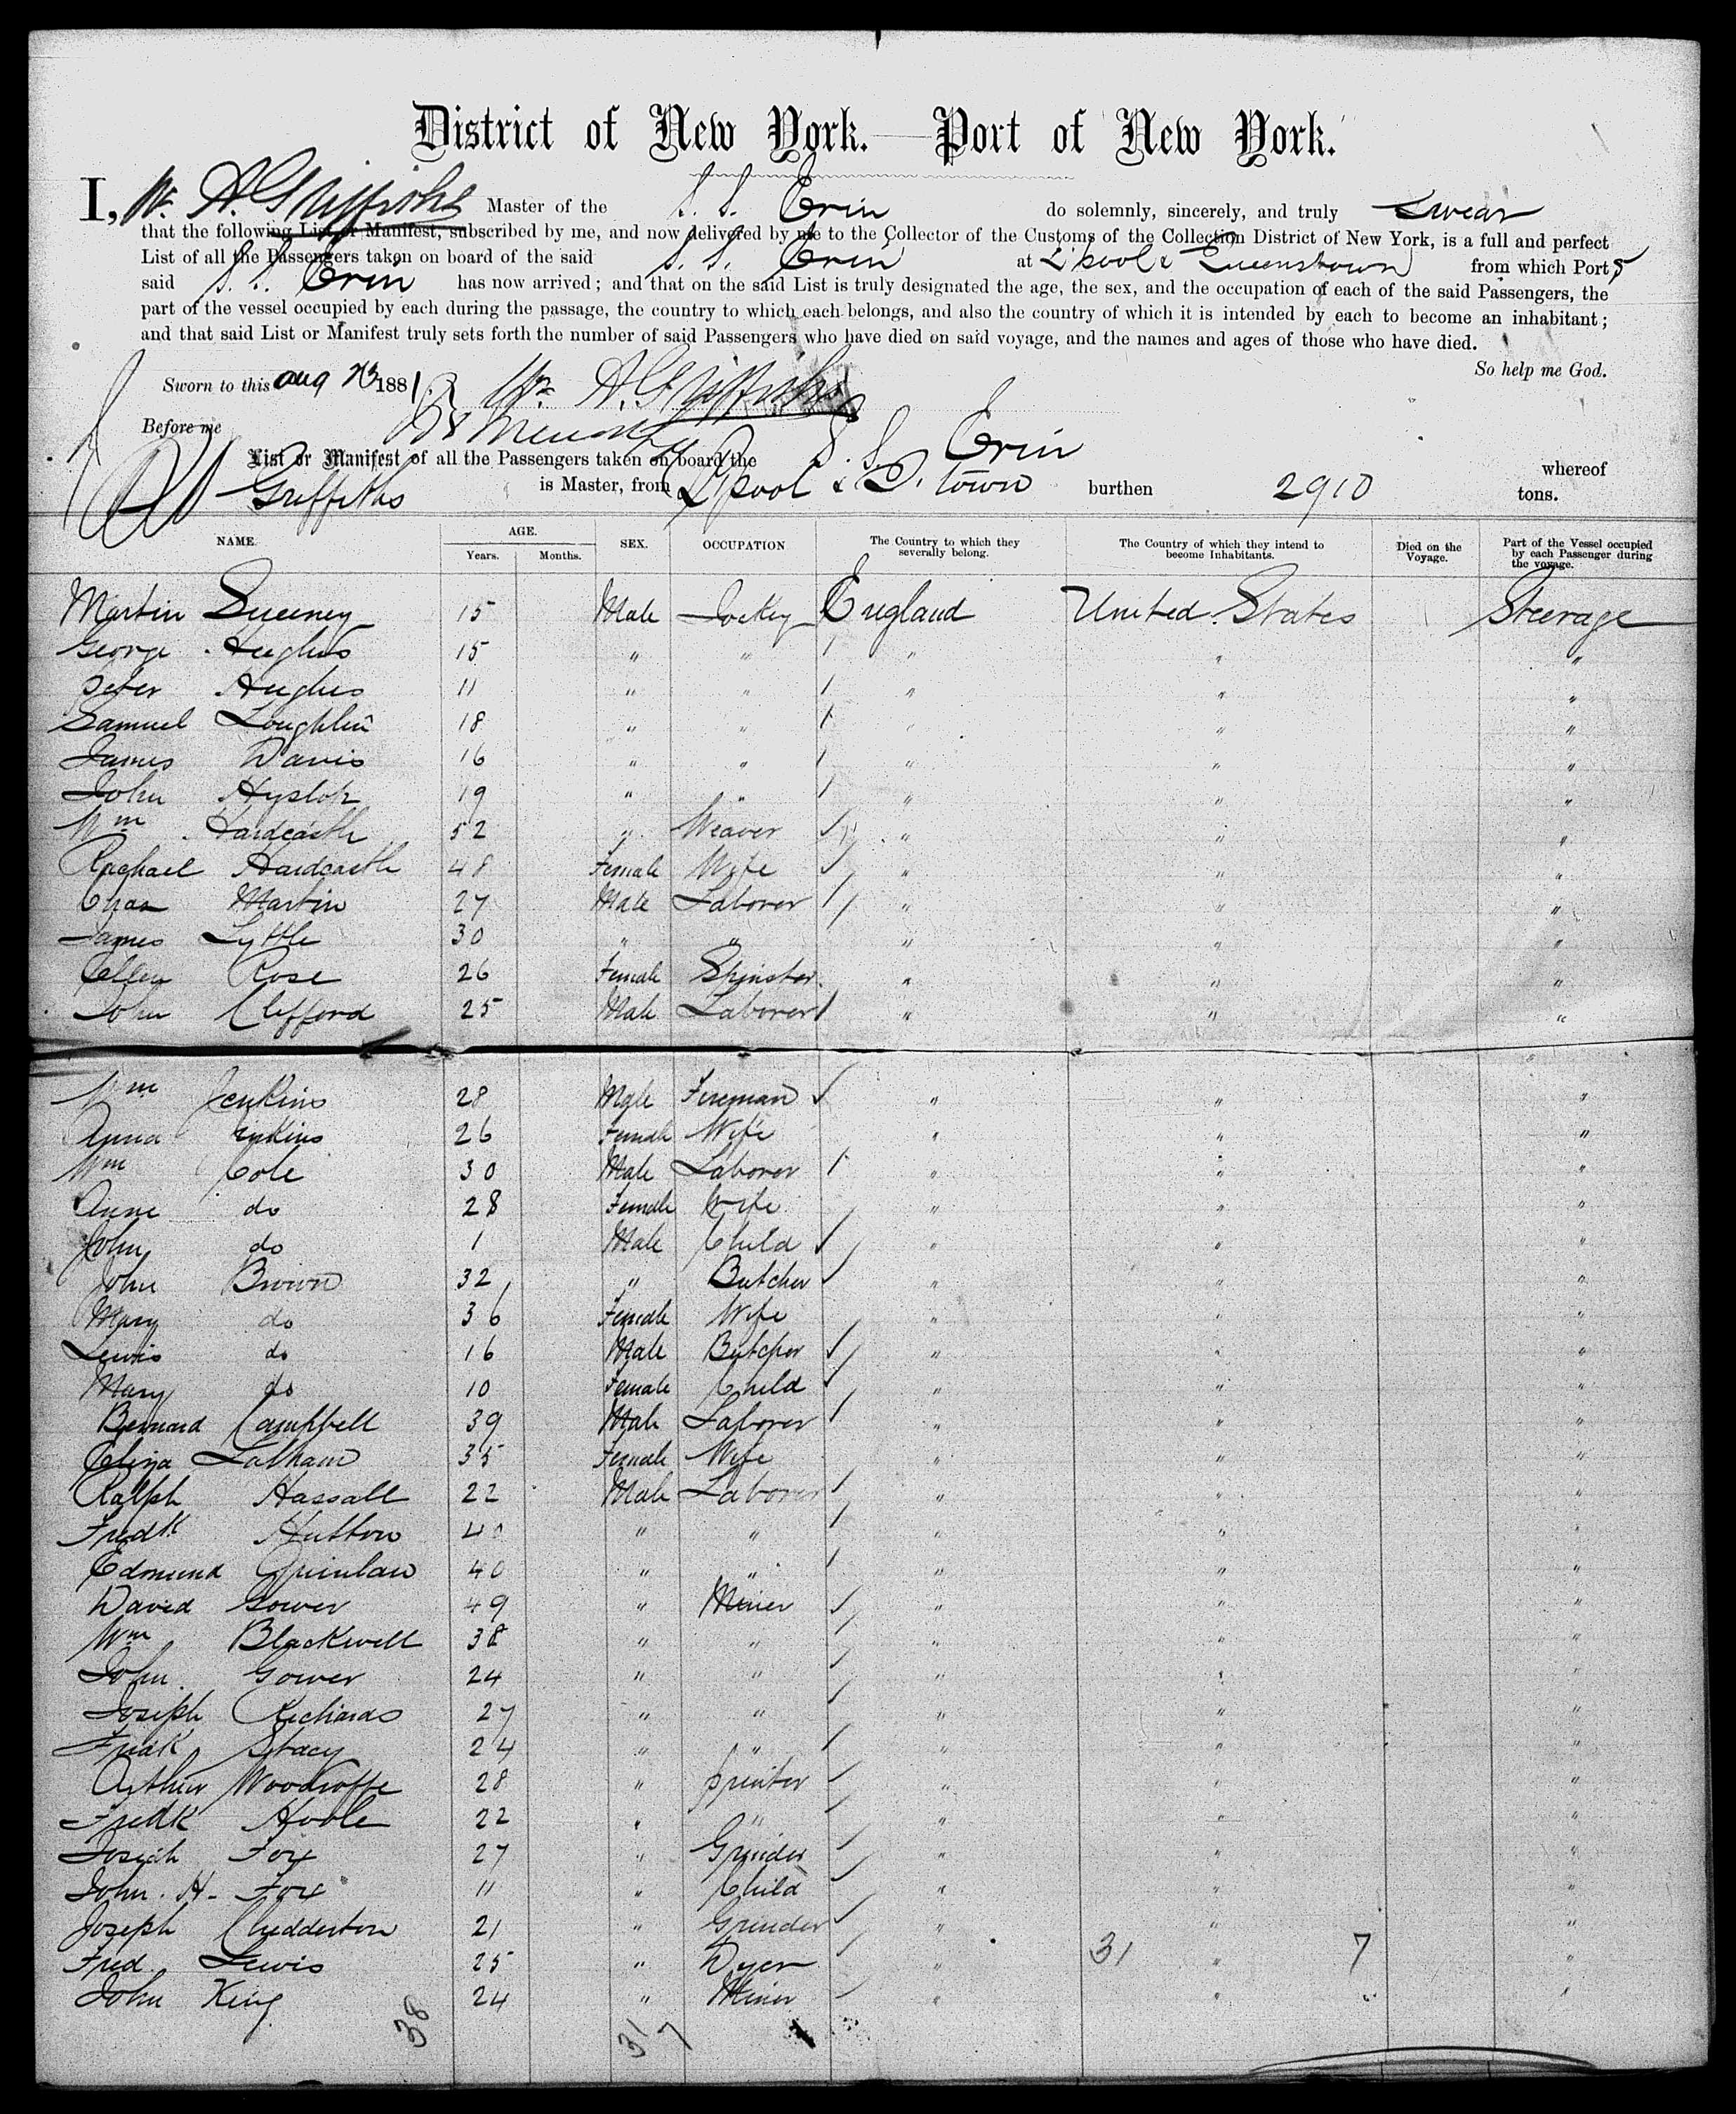 District of New York.—Port of New York.
I, Wm A. Griffiths Master of the S. S. Erin do solemnly, sincerely, and truly swear
that the following List or Manifest, subscribed by me, and now delivered by me to the Collector of the Customs of the Collection District of New York, is a full and perfect
List of all the Passengers taken on board of the said S. S. Erin at L'pool & Queenstown from which Ports
said S. S. Erin has now arrived; and that on the said List is truly designated the age, the sex, and the occupation of each of the said Passengers, the
part of the vessel occupied by each during the passage, the country to which each belongs, and also the country of which it is intended by each to become an inhabitant;
and that said List or Manifest truly sets forth the number of said Passengers who have died on said voyage, and the names and ages of those who have died.
So help me God.
Sworn to this Aug 23 1881 Wm A. Griffiths
Before me
List or Manifest of all the Passengers taken on board the S. S. Erin whereof
Griffiths is Master, from L'pool & Q. town burthen 2910 tons.
NAME. AGE. SEX. OCCUPATION The Country to which they severally belong. The Country of which they intend to become Inhabitants. Died on the Voyage. Part of the Vessel occupied by each Passenger during the voyage.
Years. Months.
Martin Sweeney 15 Male Jockey England United States Steerage
George Hughes 15 " " " " "
Peter Hughes 11 " " " " "
Samuel Loughlin 18 " " " " "
James Davis 16 " " " " "
John Hyslop 19 " " " " "
Wm Hardcastle 52 " Weaver " " "
Rachael Hardcastle 48 Female Wife " " "
Chas Martin 27 Male Laborer " " "
James Lyttle 30 " " " " "
Ellen Rose 26 Female Spinster " " "
John Clifford 25 Male Laborer " " "
Wm Jenkins 28 Male Fireman " " "
Anna Jenkins 26 Female Wife " " "
Wm Cole 30 Male Laborer " " "
Anne do 28 Female Wife " " "
John do 1 Male Child " " "
John Brown 32 " Butcher " " "
Mary do 36 Female Wife " " "
Lewis do 16 Male Butcher " " "
Mary do 10 Female Child " " "
Bernard Campbell 39 Male Laborer " " "
Eliza Latham 35 Female Wife " " "
Ralph Hassall 22 Male Laborer " " "
Fredk Hutton 40 " " " " "
Edmund Quinlan 40 " " " " "
David Gower 49 " Miner " " "
Wm Blackwell 38 " " " " "
John Gower 24 " " " " "
Joseph Richards 27 " " " " "
Fredk Stacy 24 " " " " "
Arthur Woodroffe 28 " Printer " " "
Fredk Hoole 22 " " " " "
Josiah Fox 27 " Grinder " " "
John H. Fox 11 " Child " " "
Joseph Chedderton 21 " Grinder " " "
Fred Lewis 25 " Dyer " 31 " 7 "
John King 24 " Miner " " " "
38 31 7